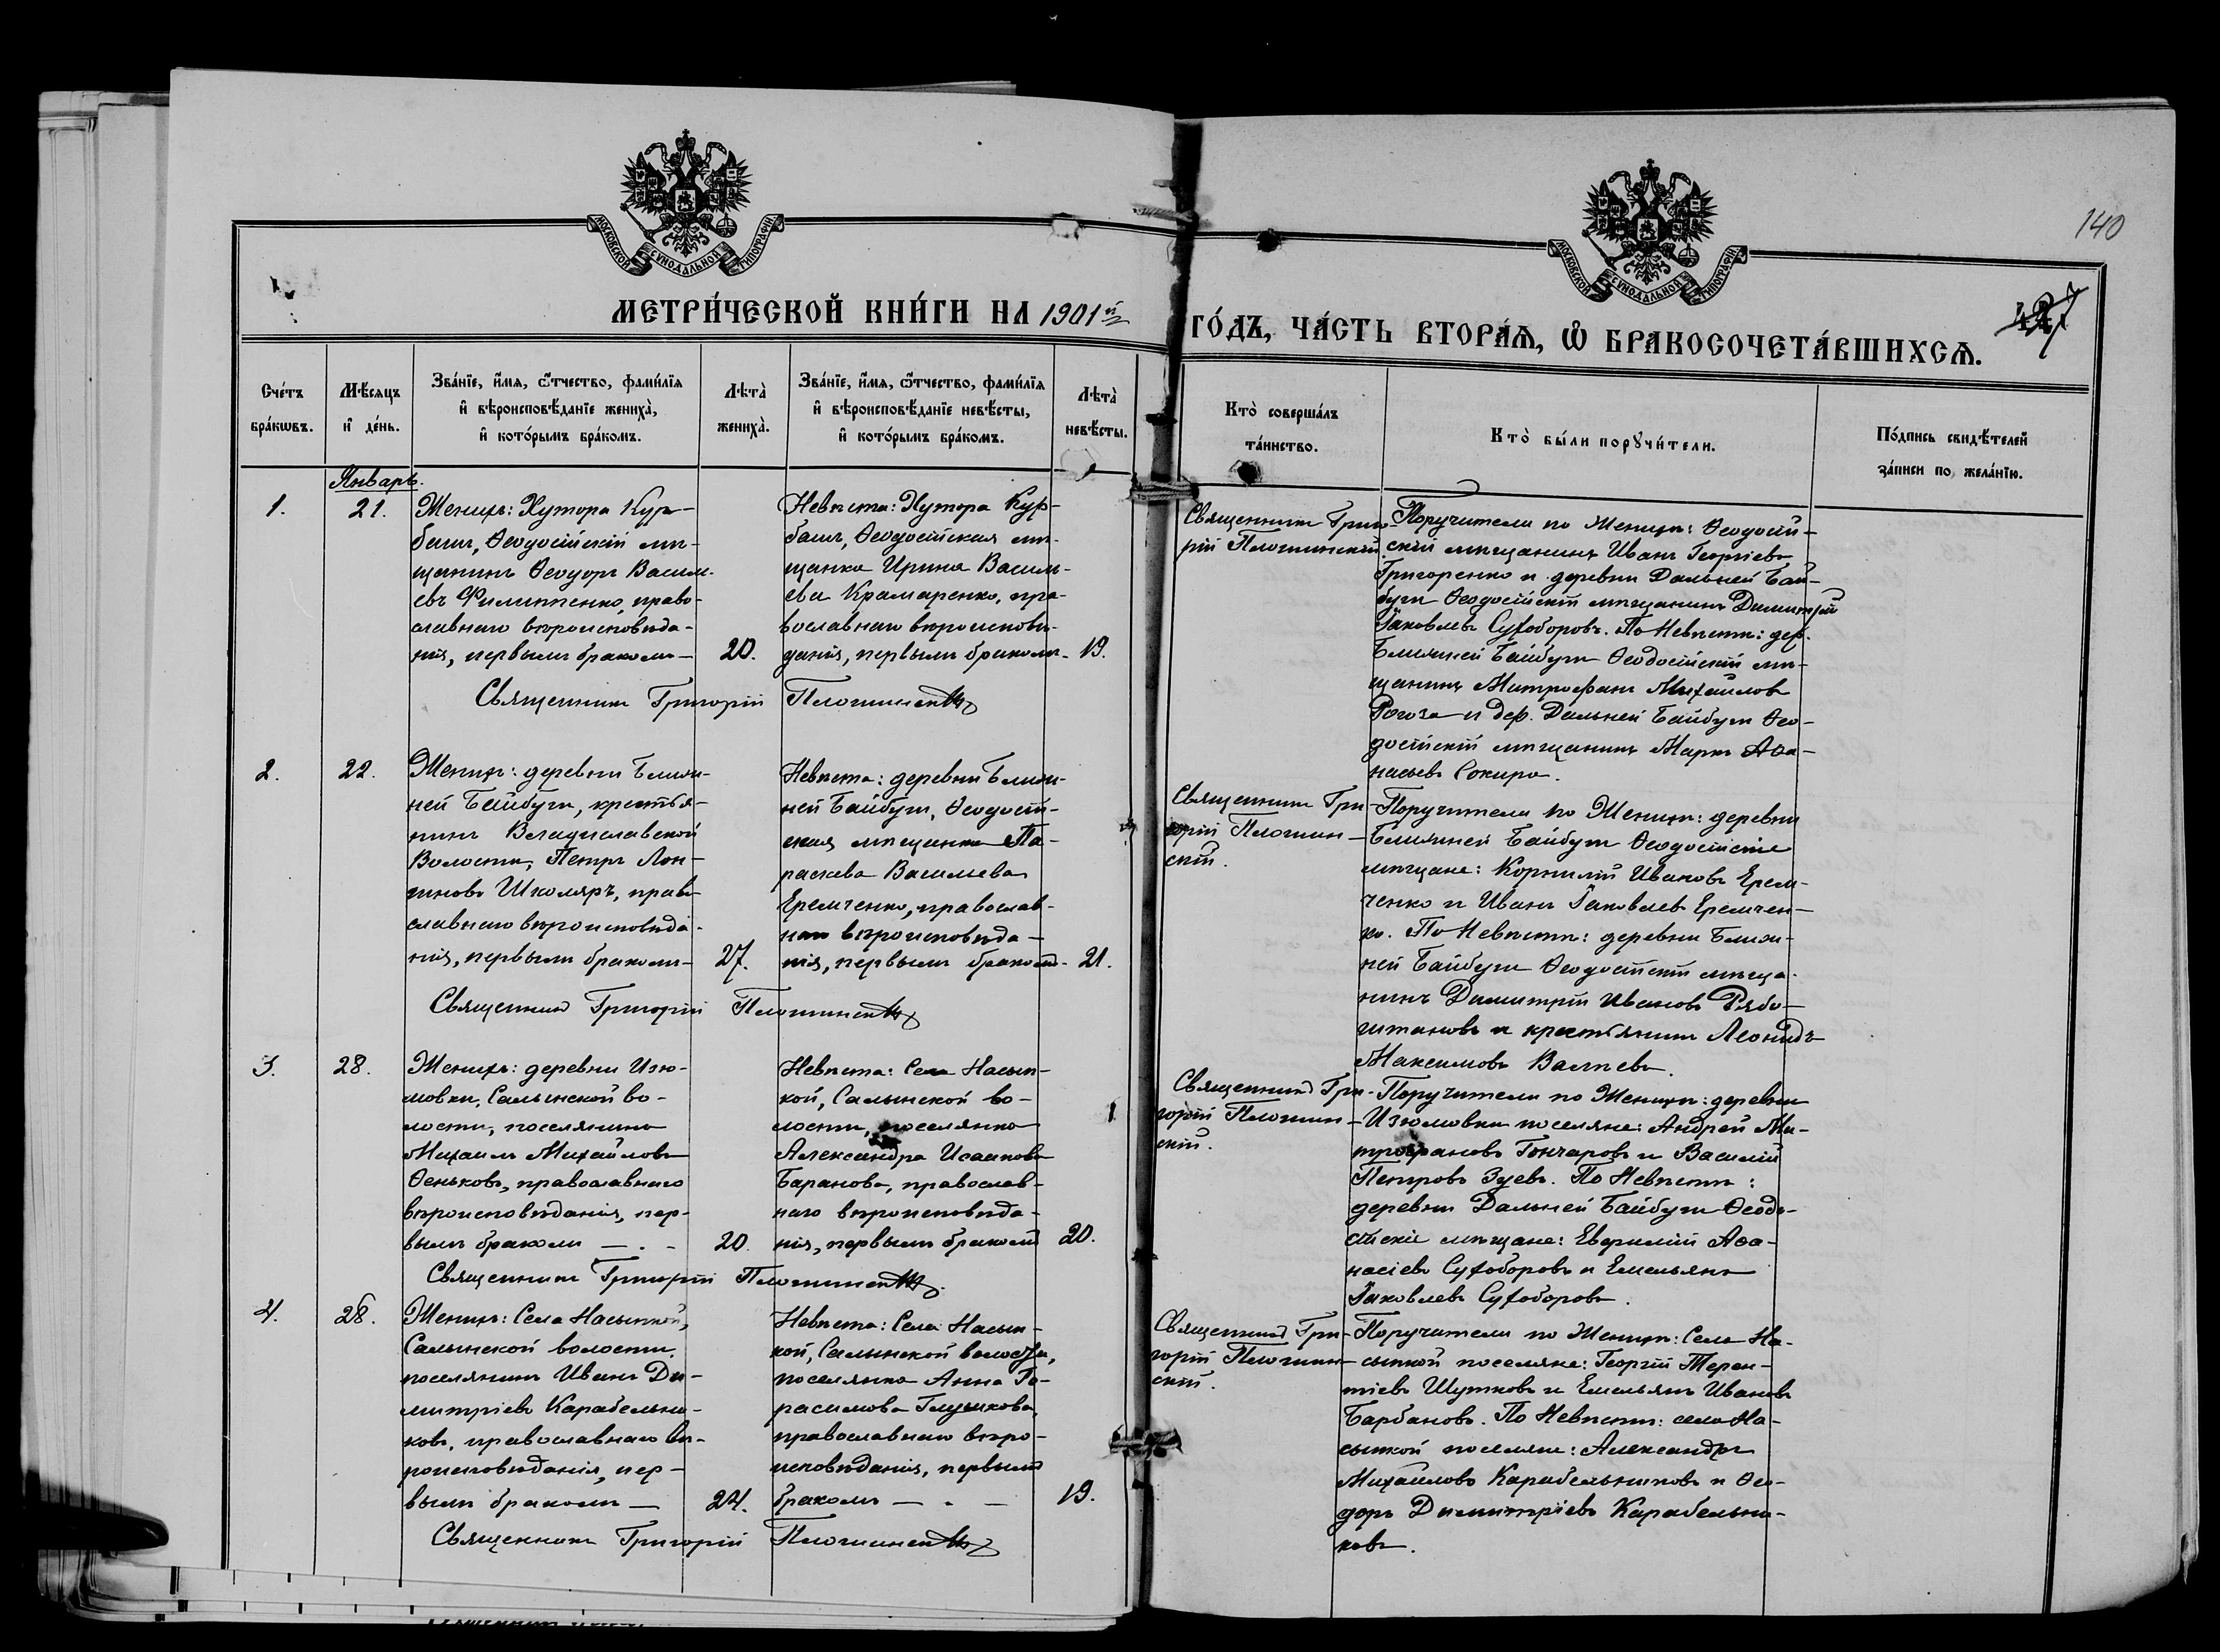 140
МОСКОВСКОЙ СѴНОДАЛЬНОЙ ТИПОГРАФІИ
МОСКОВСКОЙ СѴНОДАЛЬНОЙ ТИПОГРАФІИ
МЕТРИ́ЧЕСКОЙ КНИ́ГИ НА 1901й
ГО́ДЪ, ЧА́СТЬ ВТОРА́Ѧ, Ѽ БРАКОСОЧЕТА́ВШИХСѦ.
Сче́тъ
бра́кωвъ.
Мѣ́сяцъ
и҆ де́нь.
Зва́нїе, и҆́мѧ, ѻ҆́тчество, фами́лїѧ
и҆ вѣроисповѣ́данїе жениха̀,
и҆ кото́рымъ бра́комъ.
Лѣта̀
жениха̀.
Зва́нїе, и҆́мѧ, ѻ҆́тчество, фами́лїѧ
и҆ вѣроисповѣ́данїе невѣ́сты,
и҆ кото́рымъ бра́комъ.
Лѣта̀
невѣ́сты.
Кто̀ соверша́лъ
та́инство.
Кто̀ бы́ли порꙋчи́тели.
По́дпись свидѣ́телей
за́писи по жела́нїю.
Январь.
1.
21.
Женихъ: Хутора Кур-
баши, Ѳеодосійскій мѣ-
щанинъ Ѳеодоръ Василь-
евъ Филипенко, право-
славнаго вѣроисповѣда-
нія, первымъ бракомъ—
20.
Невѣста: Хутора Кур-
баши, Ѳеодосійская мѣ-
щанка Ирина Василь-
ева Крамаренко, пра-
вославнаго вѣроисповѣ-
данія, первымъ бракомъ-
19.
Священникъ Григорій Плошинскій
Священникъ Григо-
рій Плошинскій.
Поручители по Женихѣ: Ѳеодосій-
скій мѣщанинъ Иванъ Георгіевъ
Григоренко и деревни Дальней Бай-
буги Ѳеодосійскій мѣщанинъ Димитрій
Іаковлевъ Сухоборовъ. По Невѣстѣ: дер.
Ближней Байбуги Ѳеодосійскій мѣ-
щанинъ Митрофанъ Михайловъ
Рогоза и дер. Дальней Байбуги Ѳео-
досійскій мѣщанинъ Маркъ Аѳа-
насьевъ Сокира.
2.
22.
Женихъ: деревни Ближ-
ней Байбуги, крестья-
нинъ Владиславской
Волости, Петръ Лон-
гиновъ Школяръ, право-
славнаго вѣроисповѣда-
нія, первымъ бракомъ—
27.
Невѣста: деревни Ближ-
ней Байбуги, Ѳеодосій-
ская мѣщанка Па-
раскева Васильева
Еремченко, православ-
наго вѣроисповѣда-
нія, первымъ бракомъ-
21.
Священникъ Григорій Плошинскій
Священникъ Гри-
горій Плошин-
скій.
Поручители по Женихѣ: деревни
Ближней Байбуги Ѳеодосійскіе
мѣщане: Корнилій Ивановъ Ерем-
ченко и Иванъ Іаковлевъ Еремчен-
ко. По Невѣстѣ: деревни Ближ-
ней Байбуги Ѳеодосійскій мѣща-
нинъ Димитрій Ивановъ Рябо-
штановъ и крестьянинъ Леонидъ
Максимовъ Валѣевъ.
3.
28.
Женихъ: деревни Изю-
мовки, Салынской во-
лости, поселянинъ
Михаилъ Михайловъ
Ѳеньковъ, православнаго
вѣроисповѣданія, пер-
вымъ бракомъ — . -
20.
Невѣста: Села Насып-
кой, Салынской во-
лости, поселянка
Александра Исаакова
Баранова, православ-
наго вѣроисповѣда-
нія, первымъ бракомъ
20.
Священникъ Григорій Плошинскій.
Священникъ Гри-
горій Плошин-
скій.
Поручители по Женихѣ: деревни
Изюмовки поселяне: Андрей Ми-
трофановъ Гончаровъ и Василій
Петровъ Зуевъ. По Невѣстѣ:
деревни Дальней Байбуги Ѳеодо-
сійскіе мѣщане: Евфимій Аѳа-
насіевъ Сухоборовъ и Емельянъ
Іаковлевъ Сухоборовъ.
4.
28.
Женихъ: Села Насыпкой,
Салынской волости,
поселянинъ Иванъ Ди-
митріевъ Карабельни-
ковъ, православнаго вѣ-
роисповѣданія, пер-
вымъ бракомъ —
24.
Невѣста: Села Насып-
кой, Салынской волости,
поселянка Анна Га-
расимова Глушкова,
православнаго вѣро-
исповѣданія, первымъ
бракомъ — . —
19.
Священникъ Григорій Плошинскій
Священникъ Гри-
горій Плошин-
скій.
Поручители по Женихѣ: Села На-
сыпкой поселяне: Георгій Терен-
тіевъ Шутковъ и Емельянъ Ивановъ
Барбановъ. По Невѣстѣ: села На-
сыпкой поселяне: Александръ
Михайловъ Карабельниковъ и Ѳео-
доръ Димитріевъ Карабельни-
ковъ.